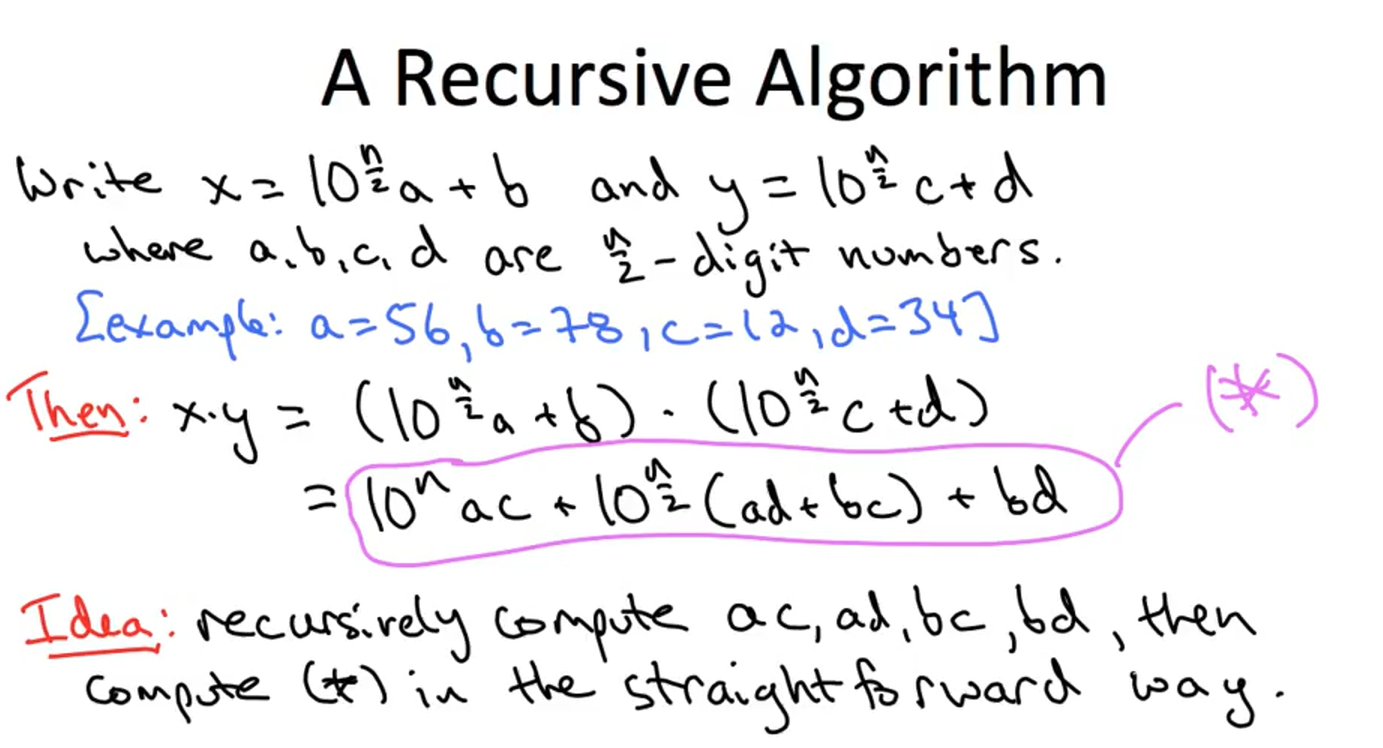 A Recursive Algorithm
Write x = 10^{n/2} a + b and y = 10^{n/2} c + d
where a, b, c, d are n/2 - digit numbers.
[example: a=56, b=78, c=12, d=34]
Then: x·y = (10^{n/2} a + b) · (10^{n/2} c + d)
(*)
= 10^n ac + 10^{n/2} (ad + bc) + bd
Idea: recursively compute ac, ad, bc, bd, then
compute (*) in the straightforward way.